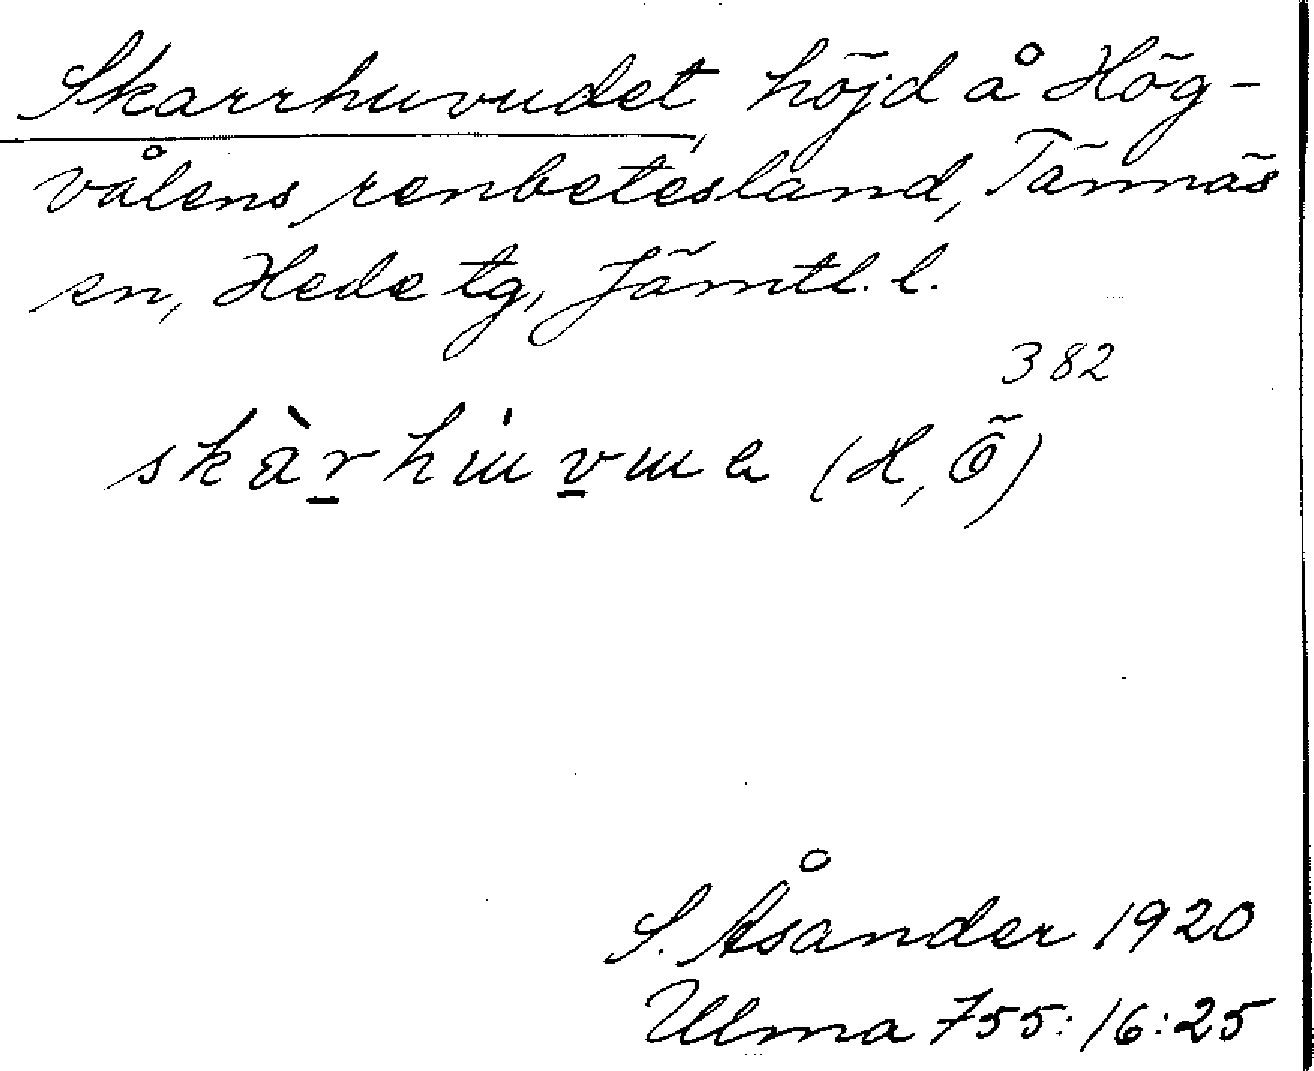 Skarrhuvudet, höjd å Hög-
vålens renbetesland, Tännäs
sn, Hede tg, Jämtl. l.
382
skàrhuvu (H, Ö)
S. Åsander 1920
Ulma 755: 16:25